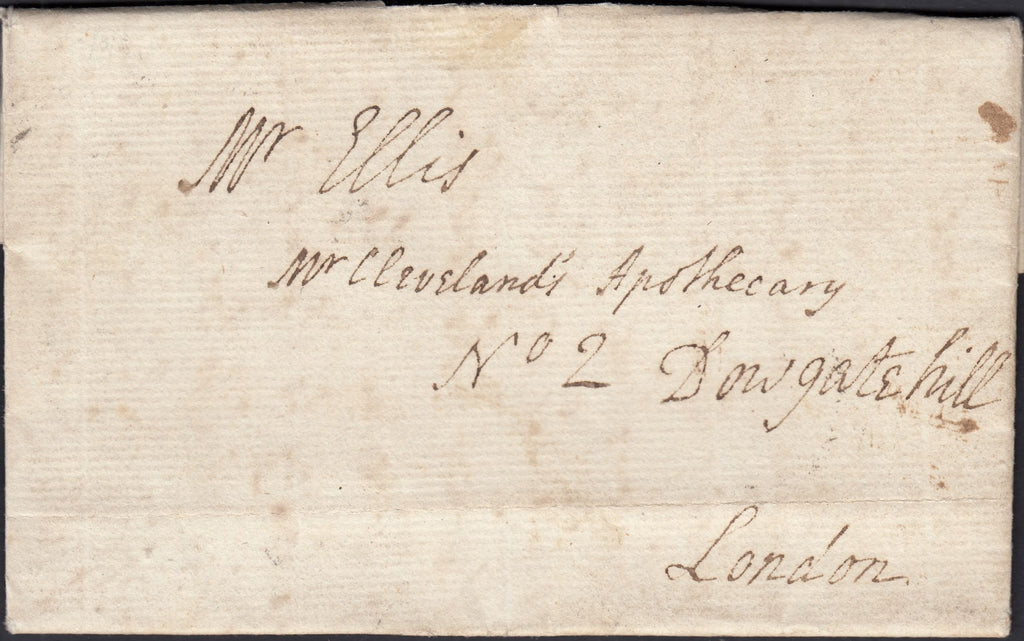 Mr Ellis
Mr Cleveland's Apothecary
No 2 Dowgate hill
London